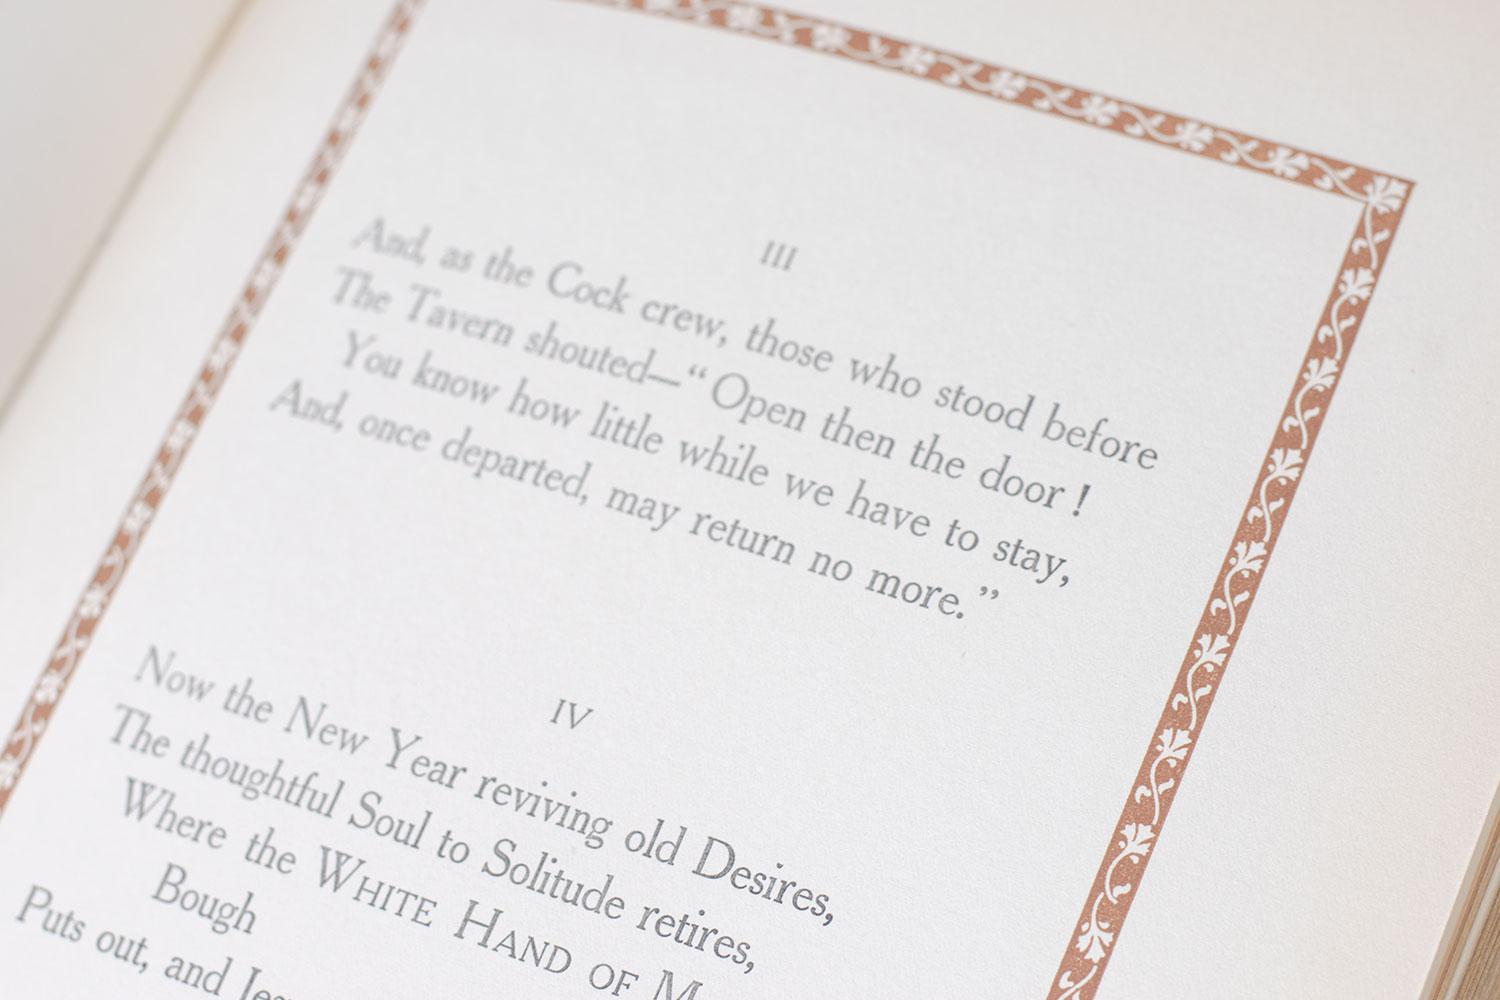 III
And, as the Cock crew, those who stood before
The Tavern shouted—“Open then the door!
You know how little while we have to stay,
And, once departed, may return no more.”
IV
Now the New Year reviving old Desires,
The thoughtful Soul to Solitude retires,
Where the WHITE HAND OF
Bough
Puts out, and